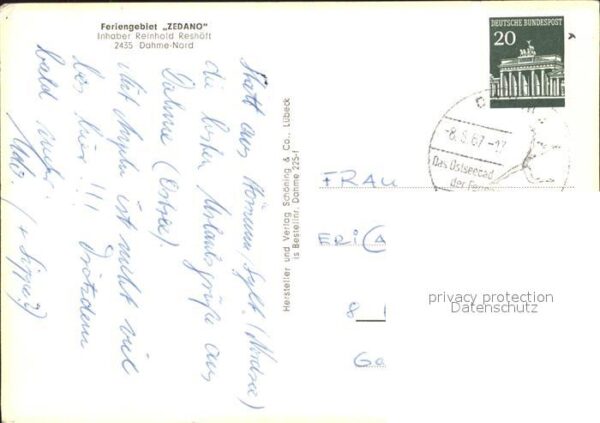 Feriengebiet „ZEDANO"
Inhaber Reinhold Reshöft
2435 Dahme-Nord
Statt aus Hörnum, Sylt. (Nordsee)
die besten Urlaubsgrüße aus
Dahme (Ostsee).
Mit Angeln ist nicht viel
los hier!!! Trotzdem
bald mehr
(+ Sippe?)
Hersteller und Verlag Schöning & Co., Lübeck
is Bestellnr. Dahme 225-f
DEUTSCHE BUNDESPOST
20
-8.6.67-17
Das Ostseebad
der Ferien
FRAU
ERICA
8
privacy protection
Datenschutz